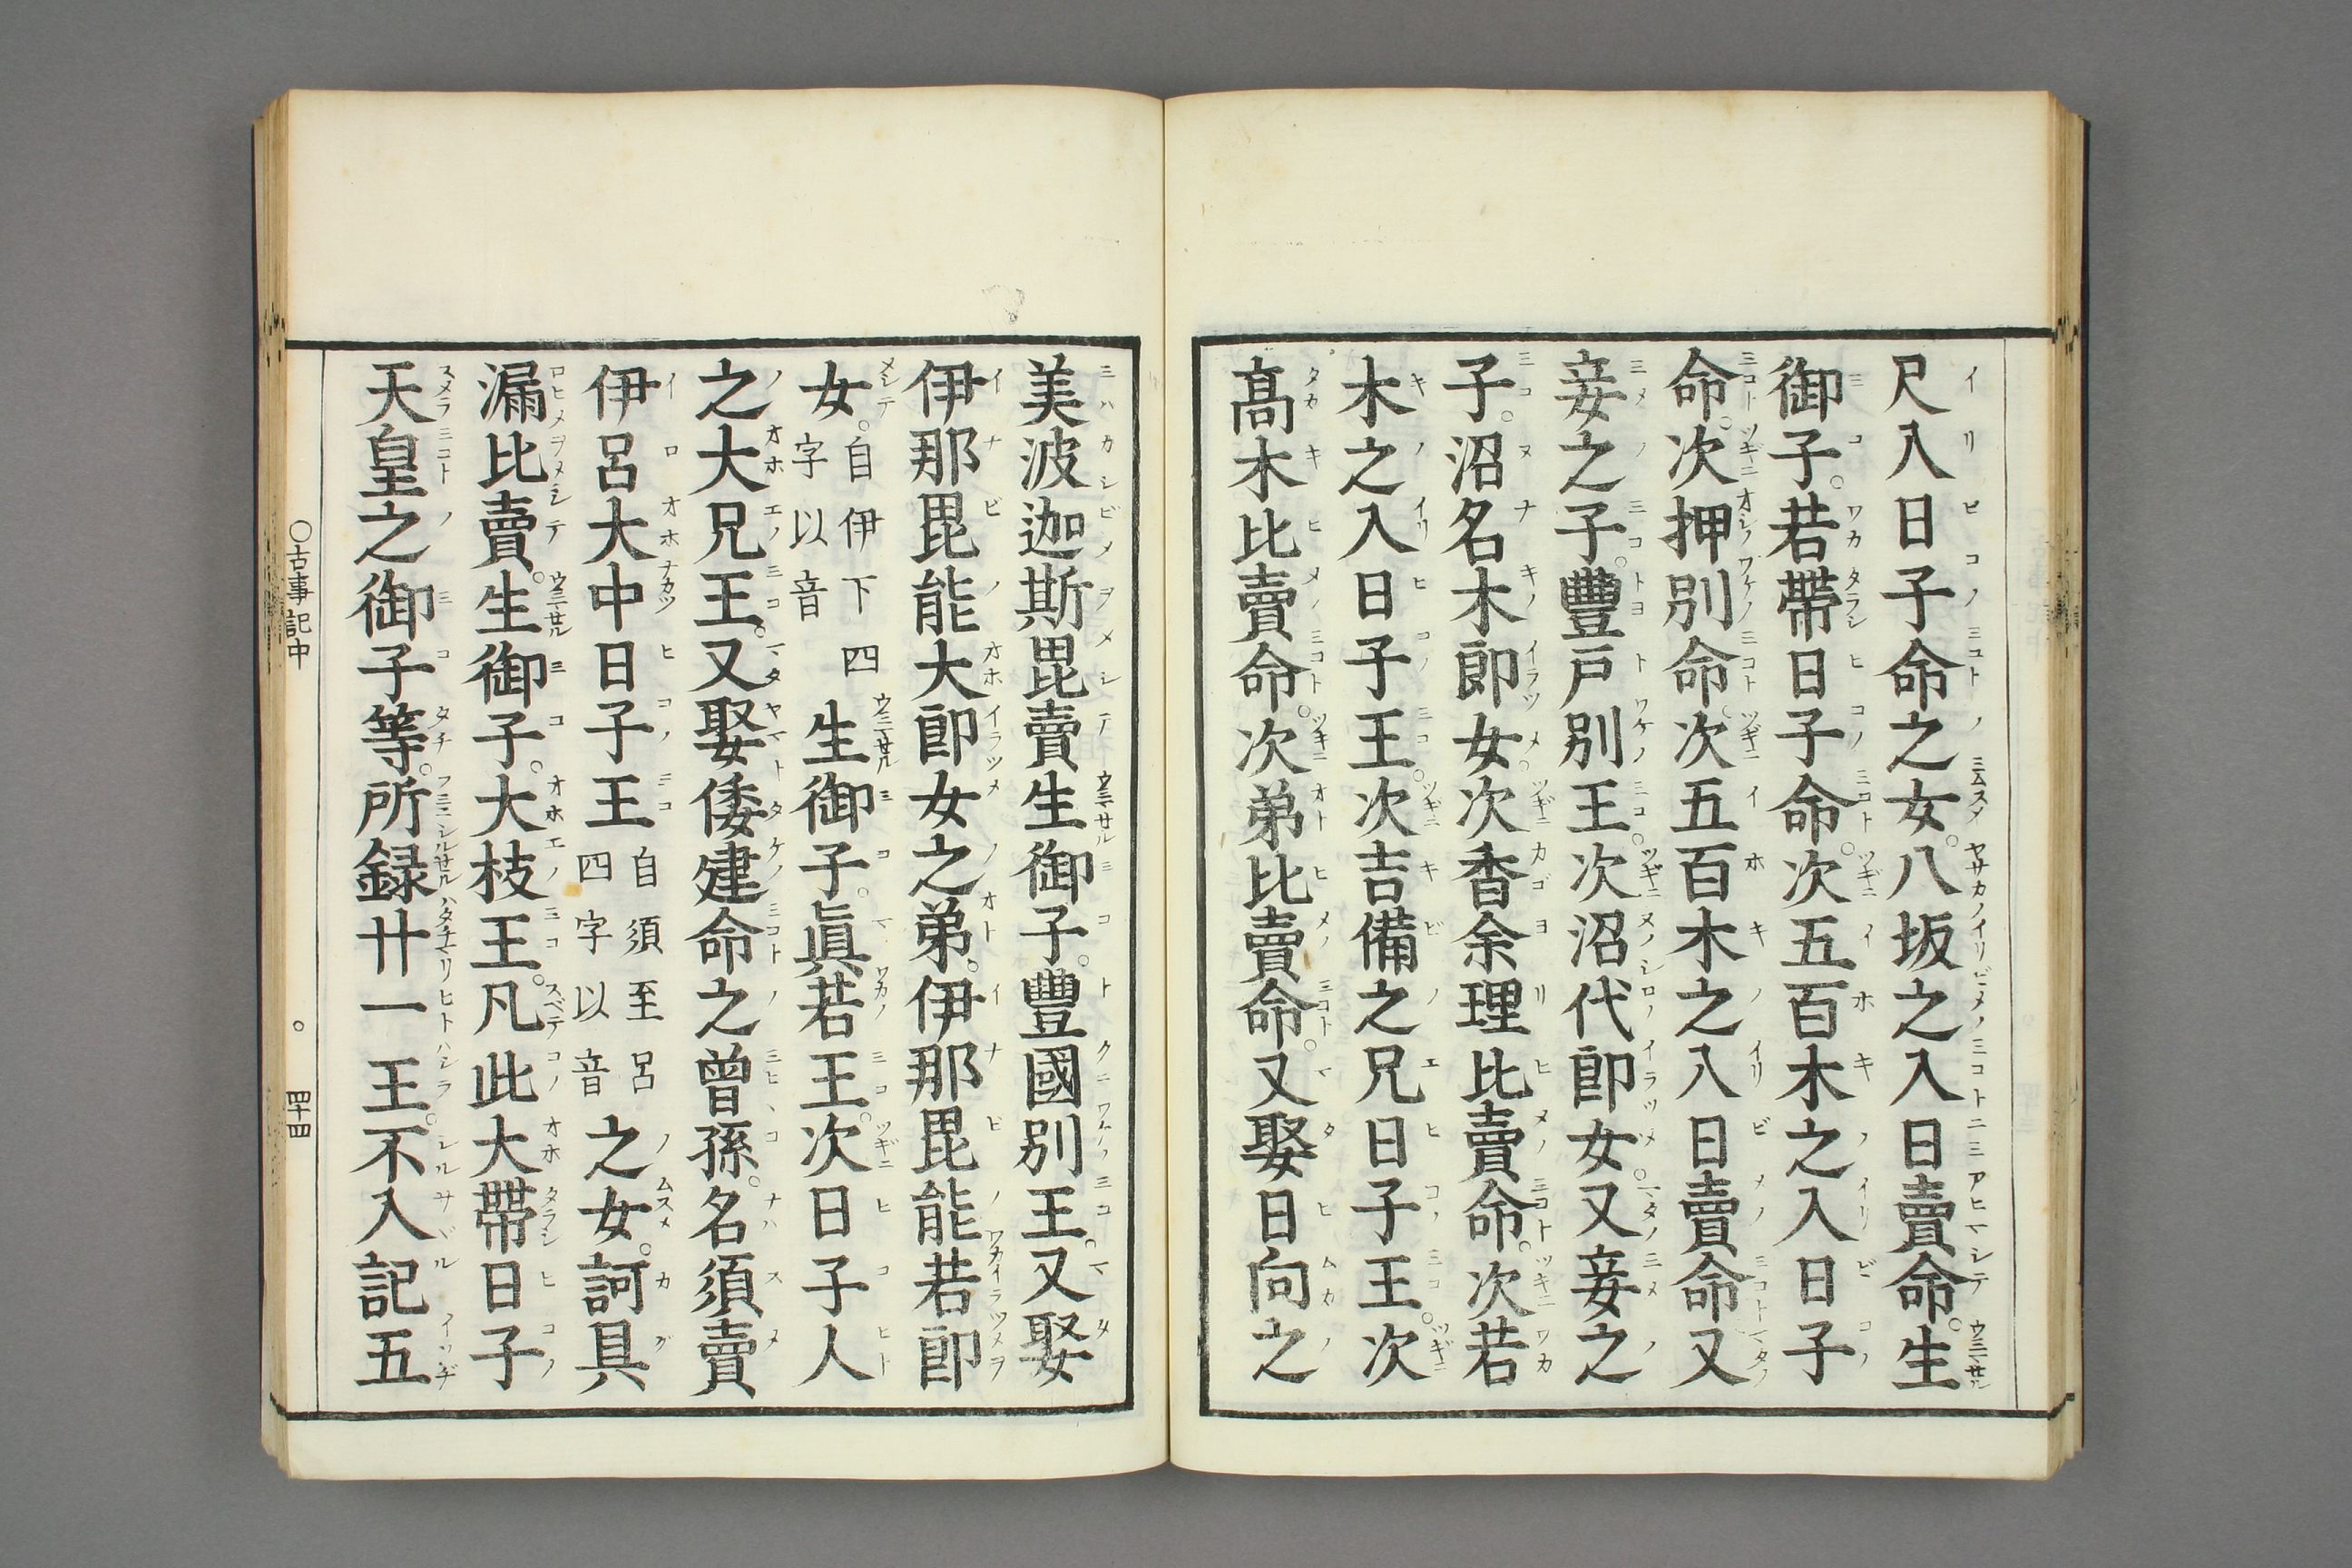 尺入日子命之女。八坂之入日賣命。生
御子。若帶日子命。次五百木之入日子
命。次押別命。次五百木之入日賣命又
妾之子。豐戸別王。次沼代郎女。又妾之
子。沼名木郎女。次香余理比賣命。次若
木之入日子王。次吉備之兄日子王。次
髙木比賣命。次弟比賣命。又娶日向之
美波迦斯毘賣生御子。豐國別王。又娶
伊那毘能大郎女之弟。伊那毘能若郎
女。自伊下四字以音生御子。眞若王。次日子人
之大兄王。又娶倭建命之曾孫。名須賣
伊呂大中日子王自須至呂四字以音之女。訶具
漏比賣。生御子。大枝王。凡此大帶日子
天皇之御子等。所録廿一王。不入記五
〇古事記中 。 四十四